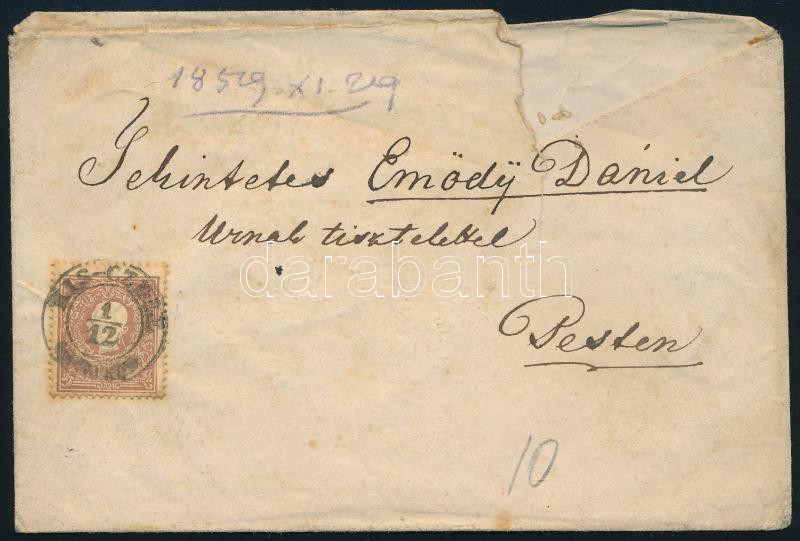 1859. XI. 29
Tekintetes Emődÿ Dániel
Urnak tisztelettel
darabanth
Pesten
1
12
10